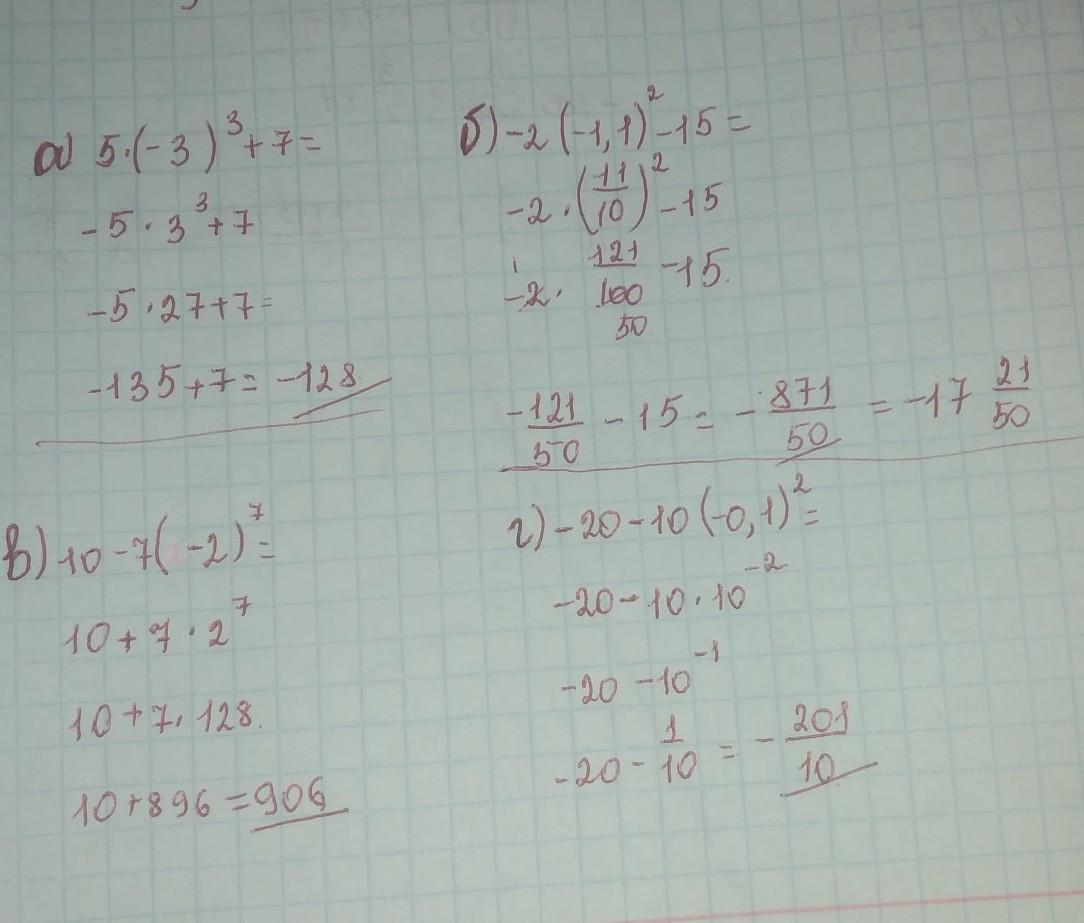 а) 5·(-3)³+7=
-5·3³+7
-5·27+7=
-135+7=-128
б) -2(-1,1)²-15=
-2·(11/10)²-15
-2·121/100-15.
1
50
-121/50-15=-871/50=-17 21/50
в) 10-7(-2)⁷=
10+7·2⁷
10+7·128.
10+896=906
г) -20-10(-0,1)²=
-20-10·10⁻²
-20-10⁻¹
-20-1/10=-201/10